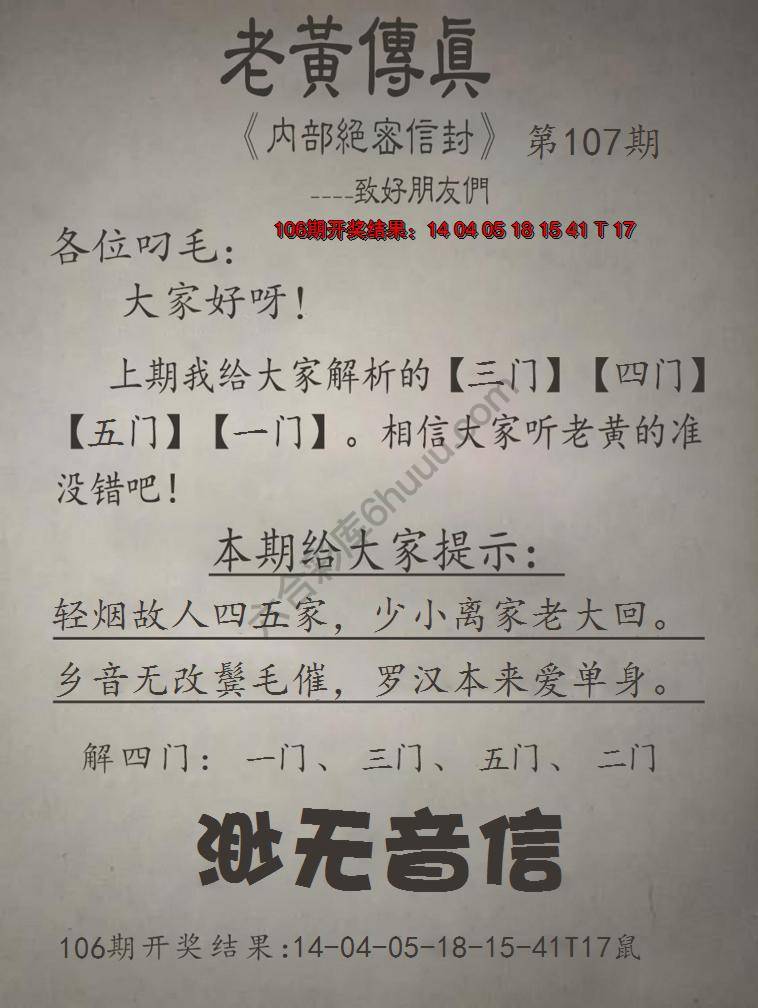 老黃傳眞
《内部絕密信封》 第107期
----致好朋友們
106期开奖结果：14 04 05 18 15 41 T 17
各位叼毛：
大家好呀！
上期我给大家解析的【三门】【四门】
【五门】【一门】。相信大家听老黄的准
没错吧！
本期给大家提示：
轻烟故人四五家，少小离家老大回。
乡音无改鬓毛催，罗汉本来爱单身。
解四门：一门、三门、五门、二门
渺无音信
106期开奖结果:14-04-05-18-15-41T17鼠
六合彩库6huuu.com